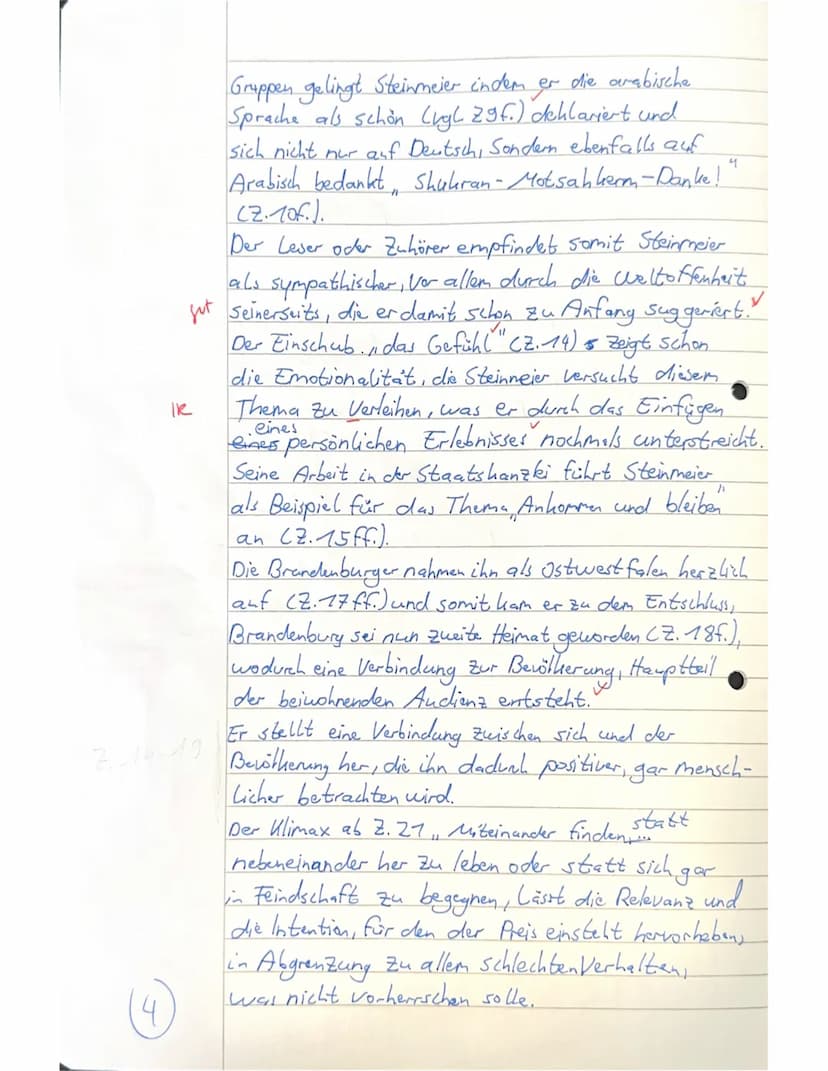 Gruppen gelingt Steinmeier indem er die arabische
Sprache als schön (vgl. Z9f.) deklariert und
sich nicht nur auf Deutsch, Sondern ebenfalls auf
Arabisch bedankt „Shukran-Motsahkern-Danke!"
(Z.10f.).
Der Leser oder Zuhörer empfindet somit Steinmeier
als sympathischer, Vor allem durch die Weltoffenheit
gut seinerseits, die er damit schon zu Anfang suggeriert.
Der Einschub „das Gefühl" (Z.14) zeigt schon
die Emotionalität, die Steinmeier versucht diesem
Thema zu Verleihen, was er durch das Einfügen
eines
eines persönlichen Erlebnisses nochmals unterstreicht.
Seine Arbeit in der Staatskanzlei führt Steinmeier
als Beispiel für das Thema „Ankommen und bleiben"
an (Z.15ff.).
Die Brandenburger nahmen ihn als Ostwestfalen herzlich
auf (Z.17ff.) und somit kam er zu dem Entschluss,
Brandenburg sei nun zweite Heimat geworden (Z.18f.),
wodurch eine Verbindung zur Bevölkerung, Hauptteil
der beiwohnenden Audienz entsteht.
Z. 14-19
Er stellt eine Verbindung zwischen sich und der
Bevölkerung her, die ihn dadurch positiver, gar mensch-
licher betrachten wird.
Der Klimax ab Z.21 „Miteinander finden,... statt
nebeneinander her zu leben oder statt sich gar
in Feindschaft zu begegnen, Lässt die Relevanz und
die Intention, für den der Preis einstelt hervorheben,
in Abgrenzung zu allem schlechten Verhalten,
was nicht vorherrschen solle.
4